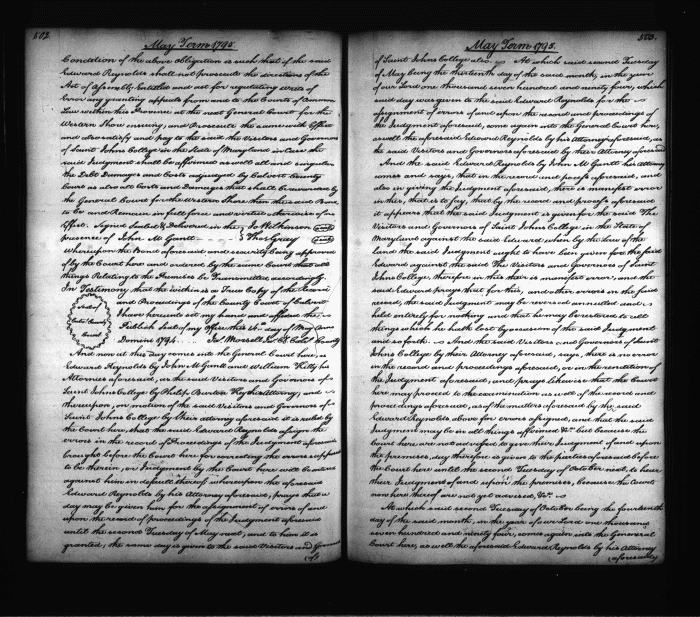 502.
May Term 1795.
Condition of the above obligation is such that if the said
Edward Reynolds shall not prosecute the directions of the
Act of Assembly Entitled and act for regulating writs of
Error and granting appeals from and to the Courts of Common
Law within this Province at the next General Court for the
Western Shore ensuing, and Prosecute the same with Effect
and also satisfy and pay to the said the Visitors and Governors
of Saint Johns College in the State of Maryland in Case the
said Judgment shall be affirmed as well all and singular
the Debt Damages and Costs adjudged by Calvert County
Court as also all Costs and Damages that shall be awarded by
the General Court for the Western Shore then the said Bond
to be and Remain in full force and virtue otherwise of no
Effect. Signed Sealed & Delivered in the Jo Wilkinson
presence of John M Gantt Thos Gray
whereupon the Bond aforesaid and security being approved
of by the Court here and ordered by the same Court that all
things Relating to the Premises be Transmitted accordingly.
In Testimony that the within is a True Copy of the Record
and Proceedings of the County Court of Calvert
I have hereunto set my hand and affixed the
Publick Seal of my Office this day of May Anno
Domini 1794. Morsell Calt County
Seal of
County
Court
And now at this day comes into the General Court here, as
Edward Reynolds by John M Gantt and William Kilty his
Attornies aforesaid, as the said Visitors and Governors of
Saint Johns College by Philip Barton Key their Attorney, and
thereupon, on motion of the said Visitors and Governors of
Saint Johns College by their attorney aforesaid it is ruled by
the Court here, that the said Edward Reynolds assign the
errors in the record of Proceedings of the Judgment aforesaid
brought before the Court here for correcting the errors supposed
to be therein, or Judgment by the Court here will be entered
against him in default thereof whereupon the aforesaid
Edward Reynolds by his Attorney aforesaid, prays that a
day may be given him for the assignment of errors of and
upon the record of proceedings of the Judgment aforesaid
until the second Tuesday of May next, and to him it is
granted, the same day is given to the said Visitors and Governors
(of)
503.
May Term 1795.
of Saint Johns College also. At which said second Tuesday
of May being the thirteenth day of the said month, in the year
of our Lord one thousand seven hundred and ninety four, which
said day was given to the said Edward Reynolds for the
assignment of errors of and upon the record and proceedings of
the Judgment aforesaid, come again into the General Court here,
as well the aforesaid Edward Reynolds by his Attorney aforesaid, as
the said Visitors and Governors aforesaid by their Attorney aforesaid
And the said Edward Reynolds by John M Gantt his Attorney
comes and says, that in the record and process aforesaid, and
also in giving the Judgment aforesaid, there is manifest error
in this, that is to say, that by the record and process aforesaid
it appears that the Judgment is given for the said The
Visitors and Governors of Saint Johns College in the State of
Maryland against the said Edward when by the law of the
land the said Judgment ought to have been given for the said
Edward against the said The Visitors and Governors of Saint
Johns College, therefore in this there is manifest error, and the
said Edward prays that for this, and other errors in the said
record, the said Judgment may be reversed annulled and
held entirely for nothing and that he may be restored to all
things which he hath lost by occasion of the said Judgment
and so forth. And the said Visitors and Governors of Saint
Johns College by their Attorney aforesaid, says, there is no error
in the record and proceedings aforesaid, or in the rendition of
the Judgment aforesaid, and prays likewise that the Court
here may proceed to the examination as well of the record and
proceedings aforesaid, as of the matters aforesaid by the said
Edward Reynolds above for errors assigned, and that the said
Judgment may be in all things affirmed &c. but because the
Court here are not advised to give their Judgment of and upon
the premises, day therefore is given to the parties aforesaid before
the Court here until the second Tuesday of October next, to hear
their Judgment of and upon the premises, because the Courts
now here thereof are not yet advised, &c.
At which said second Tuesday of October being the fourteenth
day of the said month, in the year of our Lord one thousand
seven hundred and ninety four, comes again into the General
Court here, as well the aforesaid Edward Reynolds by his Attorney
(aforesaid)